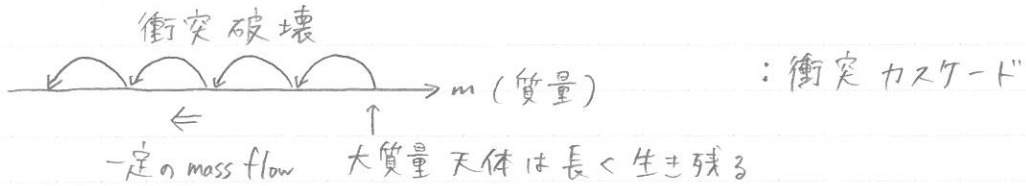 衝突破壊
m (質量) : 衝突カスケード
一定の mass flow 大質量天体は長く生き残る